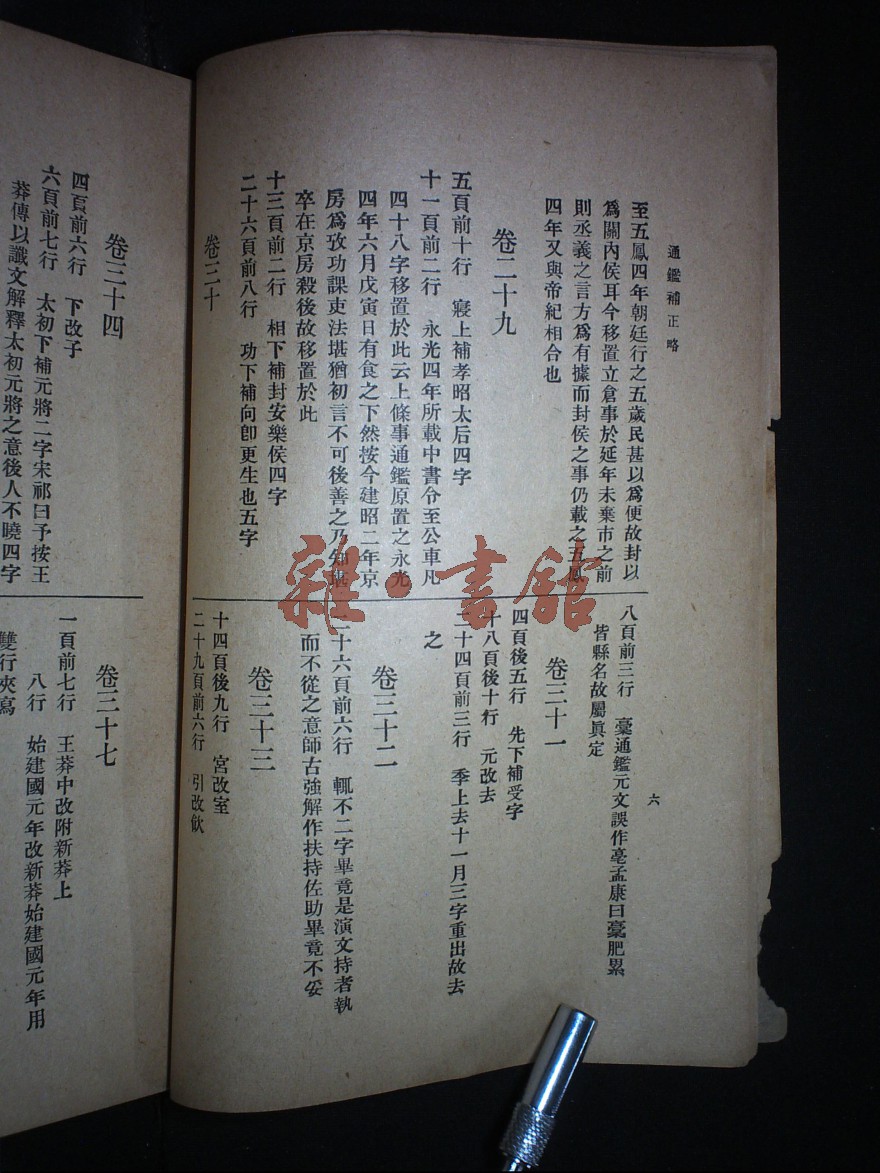 通鑑補正略
六
至五鳳四年朝廷行之五歲民甚以爲便故封以
爲關內侯耳今移置立倉事於延年未棄市之前
則丞義之言方爲有據而封侯之事仍載之五鳳
四年又與帝紀相合也
卷二十九
五頁前十行　寢上補孝昭太后四字
十一頁前二行　永光四年所載中書令至公車凡
四十八字移置於此云上條事通鑑原置之永光
四年六月戊寅日有食之下然按今建昭二年京
房爲攷功課吏法堪猶初言不可後善之乃知堪
卒在京房殺後故移置於此
十三頁前二行　相下補封安樂侯四字
二十六頁前八行　功下補向卽更生也五字
卷三十
八頁前三行　毫通鑑元文誤作亳孟康曰毫肥累
皆縣名故屬眞定
卷三十一
四頁後五行　先下補受字
十八頁後十行　元改去
二十四頁前三行　季上去十一月三字重出故去
之
卷三十二
二十六頁前六行　輒不二字畢竟是演文持者執
而不從之意師古強解作扶持佐助畢竟不妥
卷三十三
十四頁後九行　宮改室
二十九頁前六行　引改飮
卷三十四
四頁前六行　下改子
六頁前七行　太初下補元將二字宋祁曰予按王
莽傳以讖文解釋太初元將之意後人不曉四字
卷三十七
一頁前七行　王莽中改附新莽上
八行　始建國元年改新莽始建國元年用
雙行夾寫
雜·書館